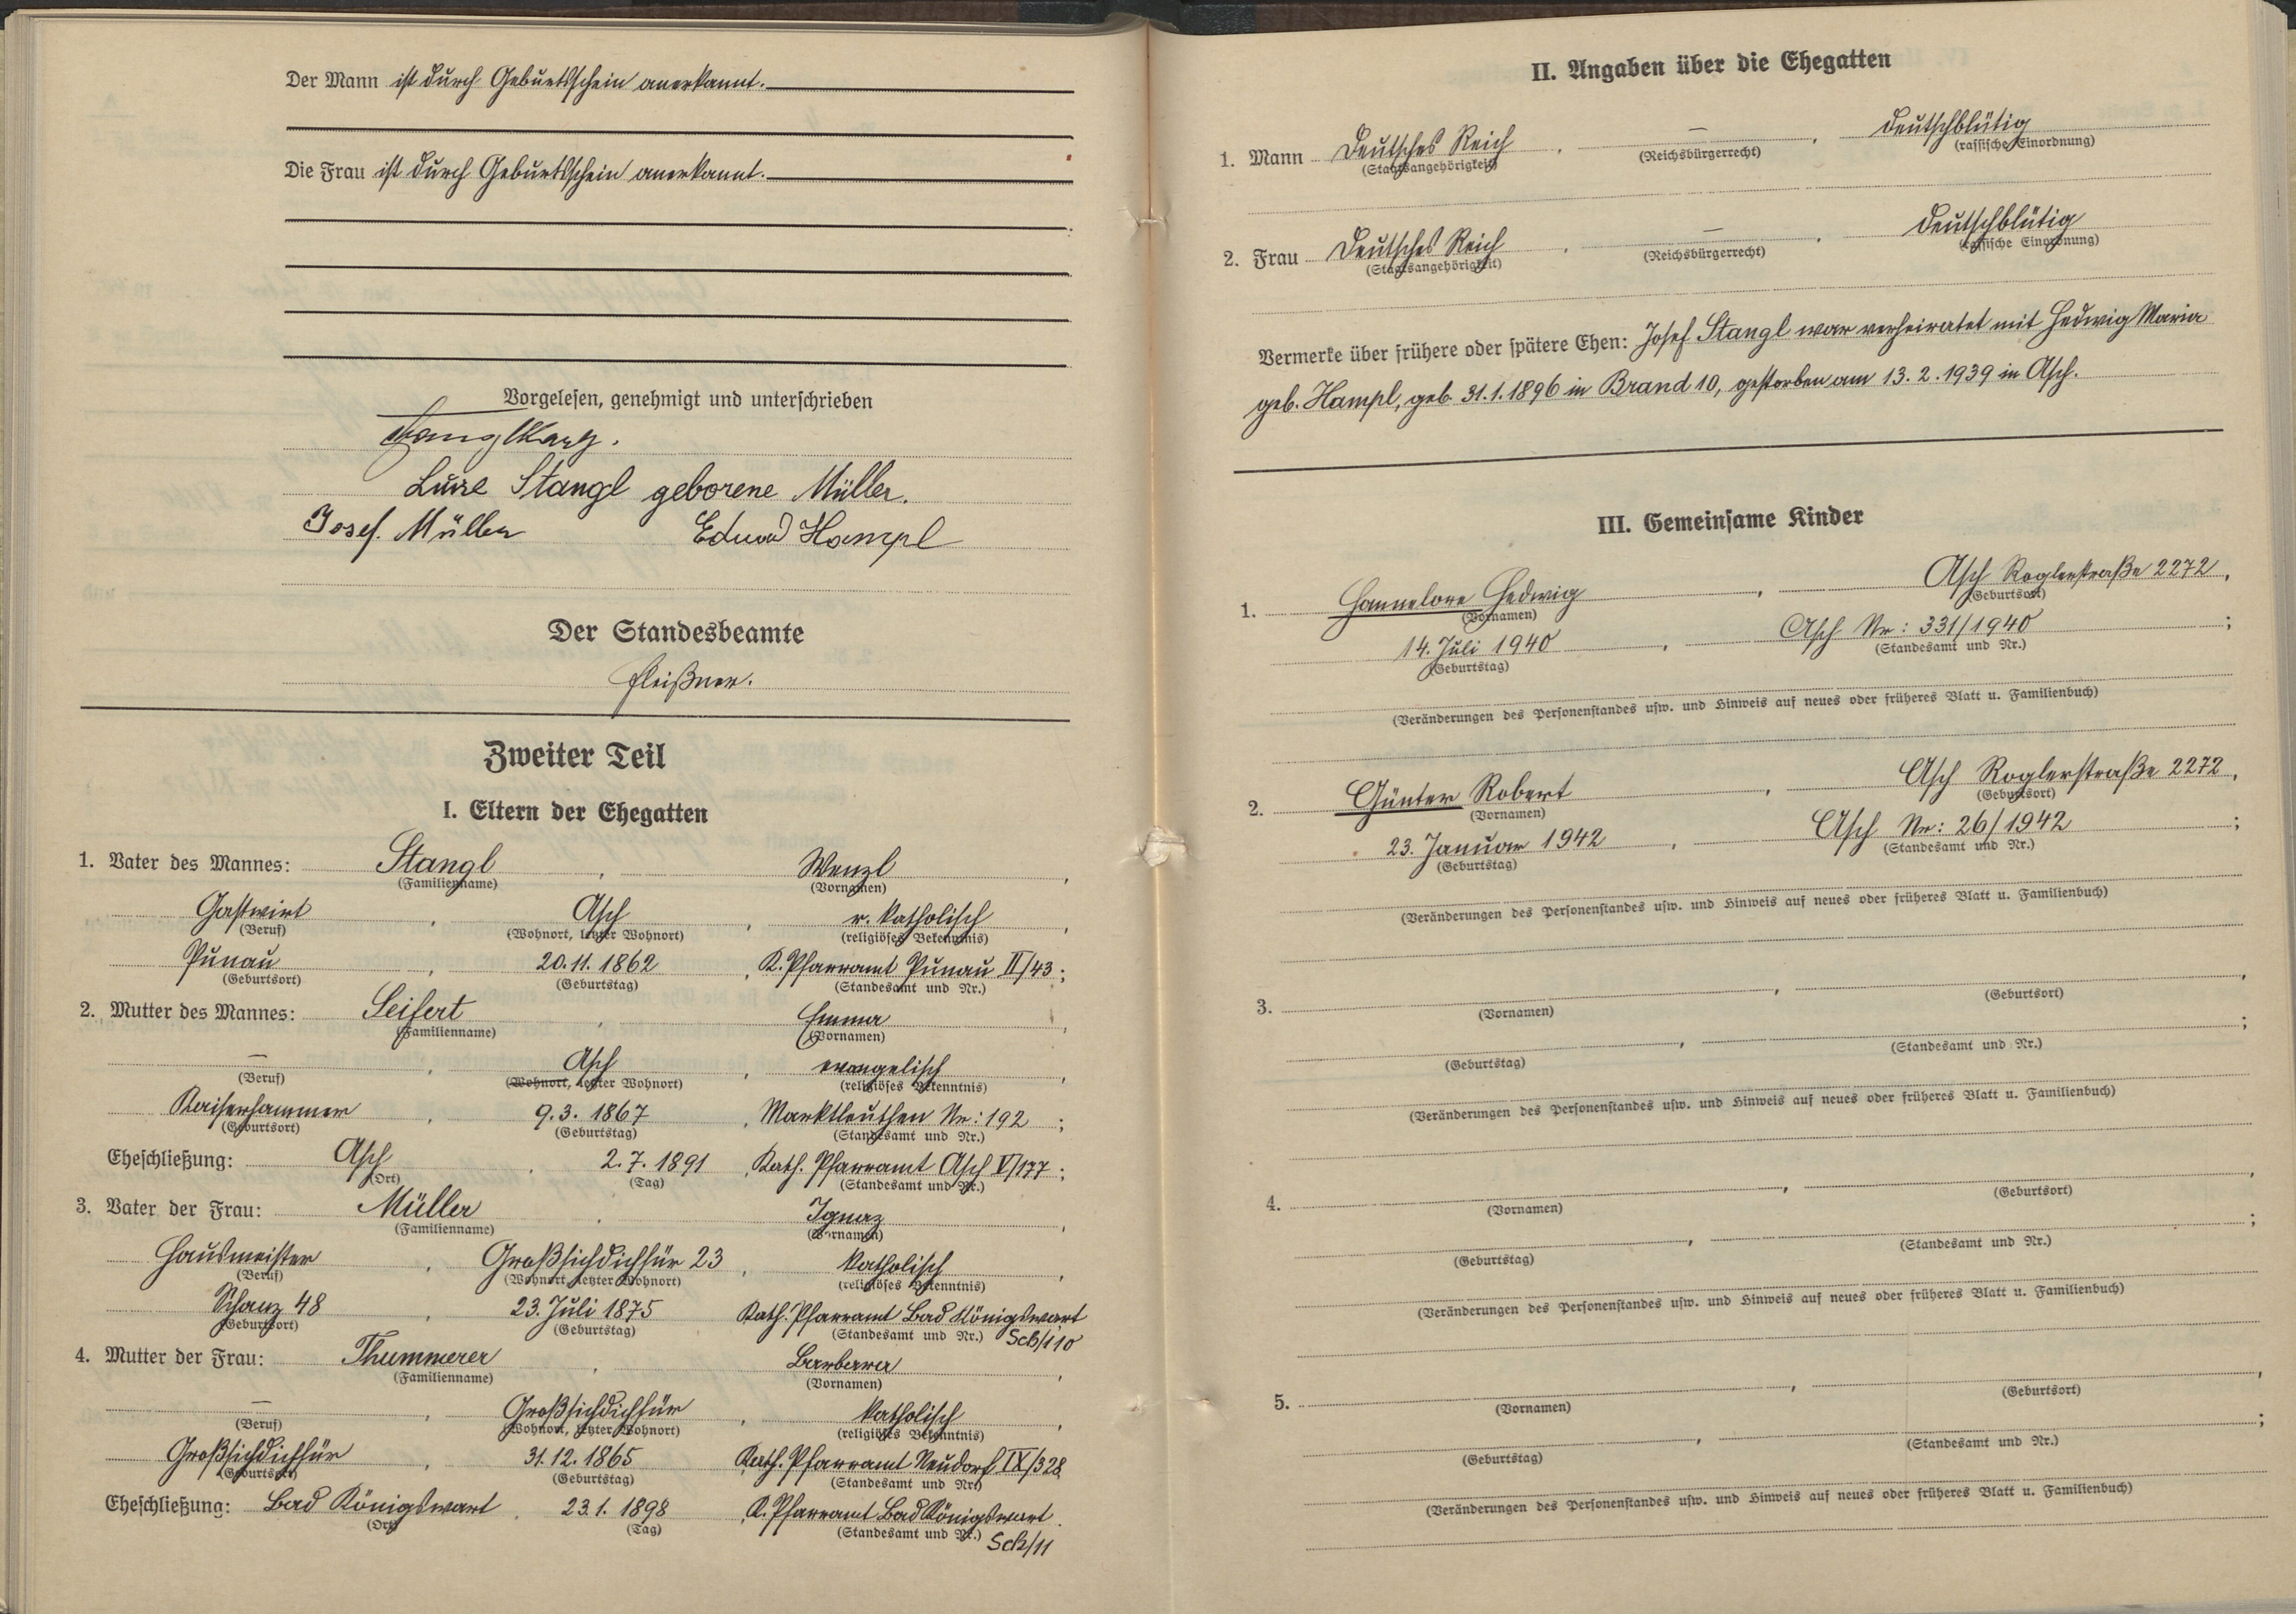 Der Mann ist durch Geburtsschein anerkannt.
Die Frau ist durch Geburtsschein anerkannt.
Vorgelesen, genehmigt und unterschrieben
Luise Stangl geborene Müller.
Josef. Müller Eduard Hampl
Der Standesbeamte
Fleißner.
Zweiter Teil
I. Eltern der Ehegatten
1. Vater des Mannes: Stangl, Wenzl,
(Familienname) (Vornamen)
Gastwirt, Asch, r. katholisch,
(Beruf) (Wohnort, letzter Wohnort) (religiöses Bekenntnis)
Punau, 20.11.1862, K. Pfarramt Punau II/43;
(Geburtsort) (Geburtstag) (Standesamt und Nr.)
2. Mutter des Mannes: Seifert, Emma,
(Familienname) (Vornamen)
–, Asch, evangelisch,
(Beruf) (Wohnort, letzter Wohnort) (religiöses Bekenntnis)
Kaiserhammer, 9.3.1867, Marktleuthen Nr: 192;
(Geburtsort) (Geburtstag) (Standesamt und Nr.)
Eheschließung: Asch, 2.7.1891, Kath. Pfarramt Asch V/177;
(Ort) (Tag) (Standesamt und Nr.)
3. Vater der Frau: Müller, Ignaz,
(Familienname) (Vornamen)
Hausmeister, Großsichdichfür 23, katholisch,
(Beruf) (Wohnort, letzter Wohnort) (religiöses Bekenntnis)
Schanz 48, 23. Juli 1875 Kath. Pfarramt Bad Königswart
(Geburtsort) (Geburtstag) (Standesamt und Nr.) Sch/110
4. Mutter der Frau: Thummerer, Barbara,
(Familienname) (Vornamen)
–, Großsichdichfür, katholisch,
(Beruf) (Wohnort, letzter Wohnort) (religiöses Bekenntnis)
Großsichdichfür, 31.12.1865 Kath. Pfarramt Neudorf IX/328
(Geburtsort) (Geburtstag) (Standesamt und Nr.)
Eheschließung: Bad Königswart, 23.1.1898, K. Pfarramt Bad Königswart.
(Ort) (Tag) (Standesamt und Nr.) Sch/11
II. Angaben über die Ehegatten
1. Mann Deutsches Reich, –, deutschblütig
(Staatsangehörigkeit) (Reichsbürgerrecht) (rassische Einordnung)
2. Frau Deutsches Reich, –, deutschblütig
(Staatsangehörigkeit) (Reichsbürgerrecht) (rassische Einordnung)
Vermerke über frühere oder spätere Ehen: Josef Stangl war verheiratet mit Hedwig Maria
geb. Hampl, geb. 31.1.1896 in Brand 10, gestorben am 13.2.1939 in Asch.
III. Gemeinsame Kinder
1. Hannelore Hedwig, Asch Roglerstraße 2272,
(Vornamen) (Geburtsort)
14. Juli 1940, Asch Nr: 331/1940;
(Geburtstag) (Standesamt und Nr.)
(Veränderungen des Personenstandes usw. und Hinweis auf neues oder früheres Blatt u. Familienbuch)
2. Günter Robert, Asch Roglerstraße 2272,
(Vornamen) (Geburtsort)
23. Januar 1942, Asch Nr: 26/1942;
(Geburtstag) (Standesamt und Nr.)
(Veränderungen des Personenstandes usw. und Hinweis auf neues oder früheres Blatt u. Familienbuch)
3. , ,
(Vornamen) (Geburtsort)
, ;
(Geburtstag) (Standesamt und Nr.)
(Veränderungen des Personenstandes usw. und Hinweis auf neues oder früheres Blatt u. Familienbuch)
4. , ,
(Vornamen) (Geburtsort)
, ;
(Geburtstag) (Standesamt und Nr.)
(Veränderungen des Personenstandes usw. und Hinweis auf neues oder früheres Blatt u. Familienbuch)
5. , ,
(Vornamen) (Geburtsort)
, ;
(Geburtstag) (Standesamt und Nr.)
(Veränderungen des Personenstandes usw. und Hinweis auf neues oder früheres Blatt u. Familienbuch)